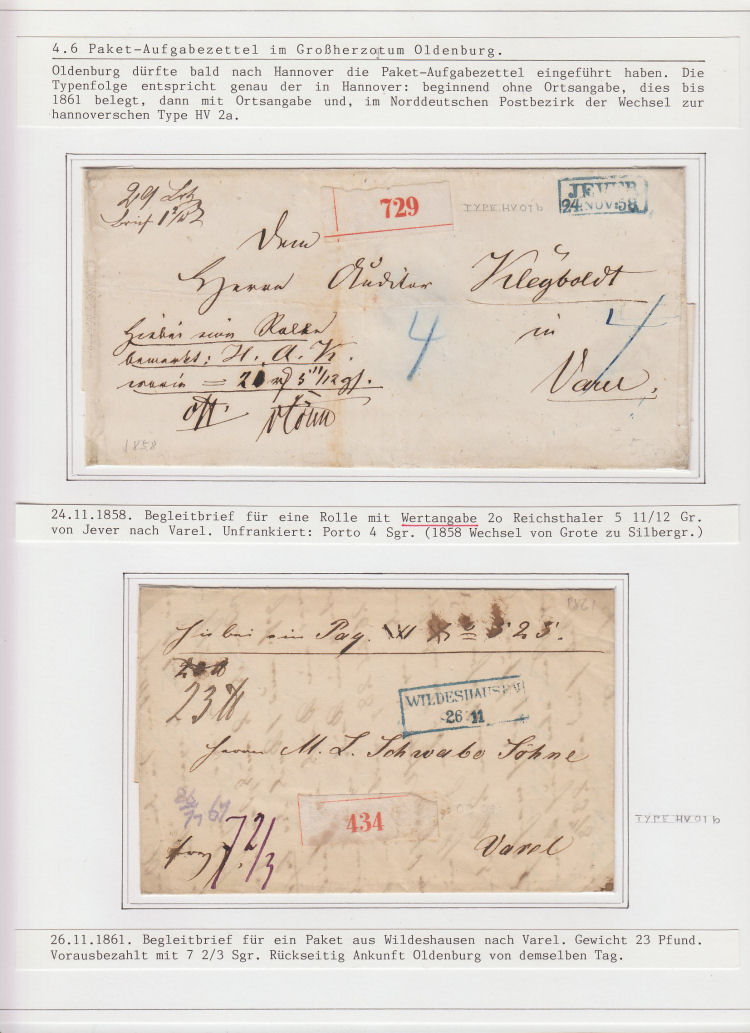 4.6 Paket-Aufgabezettel im Großherzotum Oldenburg.
Oldenburg dürfte bald nach Hannover die Paket-Aufgabezettel eingeführt haben. Die
Typenfolge entspricht genau der in Hannover: beginnend ohne Ortsangabe, dies bis
1861 belegt, dann mit Ortsangabe und, im Norddeutschen Postbezirk der Wechsel zur
hannoverschen Type HV 2a.
729
TYPE HV 01 b
JEVER
24.NOV.58
Dem
Herrn Auditor
in
Varel.
4
4
Hiebei eine Rolle
bemerkt: H. A. K.
worin = 20 5 11/12 gf.
1858
24.11.1858. Begleitbrief für eine Rolle mit Wertangabe 2o Reichsthaler 5 11/12 Gr.
von Jever nach Varel. Unfrankiert: Porto 4 Sgr. (1858 Wechsel von Grote zu Silbergr.)
1861
Hiebei ein Paq.
23 ℔
WILDESHAUSEN
26 11
Herrn M. L. Schwabe Söhne
434
Varel
7 2/3
TYPE HV 01 b
26.11.1861. Begleitbrief für ein Paket aus Wildeshausen nach Varel. Gewicht 23 Pfund.
Vorausbezahlt mit 7 2/3 Sgr. Rückseitig Ankunft Oldenburg von demselben Tag.